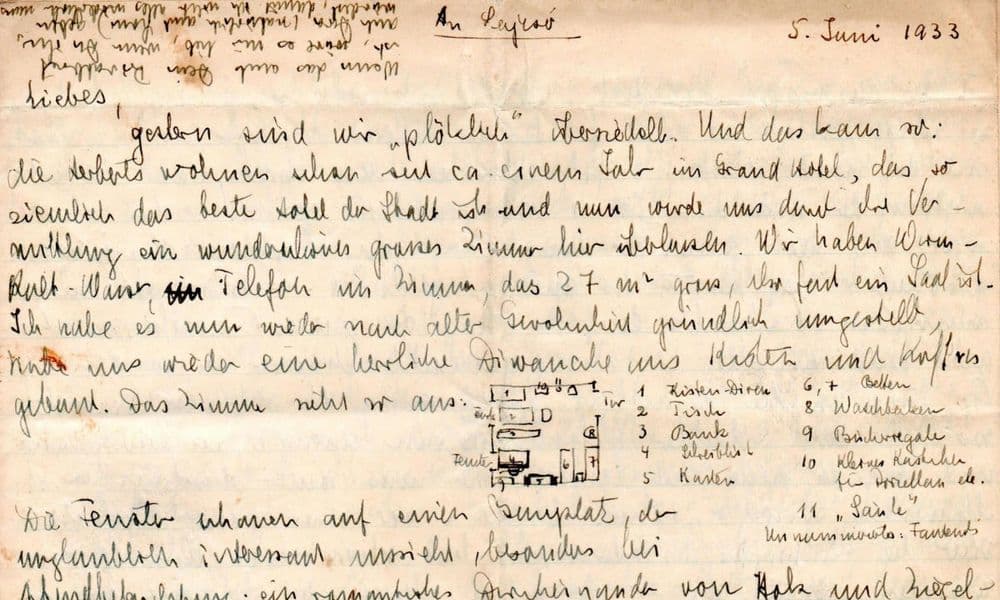 An
5. Juni 1933
Wenn das auf Dein
ist, wäre es mir lieb, wenn Du ihr,
auch Dir (natürlich auch Hom) geben
würdest damit ich nicht alles wiederholen muss
Liebes,
gestern sind wir „plötzlich" übersiedelt. Und das kam so:
die Herberts wohnen schon seit ca. einem Jahr im Grand Hotel, das so
ziemlich das beste Hotel der Stadt ist und nun wurde uns durch ihre Ver-
mittlung ein wunderschönes grosses Zimmer hier überlassen. Wir haben Warm-
Kalt-Wasser, Telefon im Zimmer, das 27 m² gross also fast ein Saal ist.
Ich habe es nun wieder nach alter Gewohnheit gründlich umgestellt,
habe uns wieder eine herrliche aus Kisten und Koffern
gebaut. Das Zimmer sieht so aus:
Tür
Fenster
1 Kisten-Diwan
2 Tisch
3 Bank
4 Schreibtisch
5 Kasten
6, 7 Betten
8 Waschbecken
9 Bücherregale
10 kleines Kästchen
für Porzellan etc.
11 „Säule"
Die Fenster schauen auf einen Bauplatz, der
unglaublich interessant aussieht, besonders bei
ein romantisches Durcheinander von Holz und Ziegel-